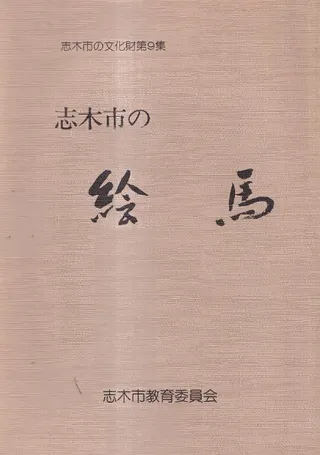 志木市の文化財第9集
志木市の
絵馬
志木市教育委員会